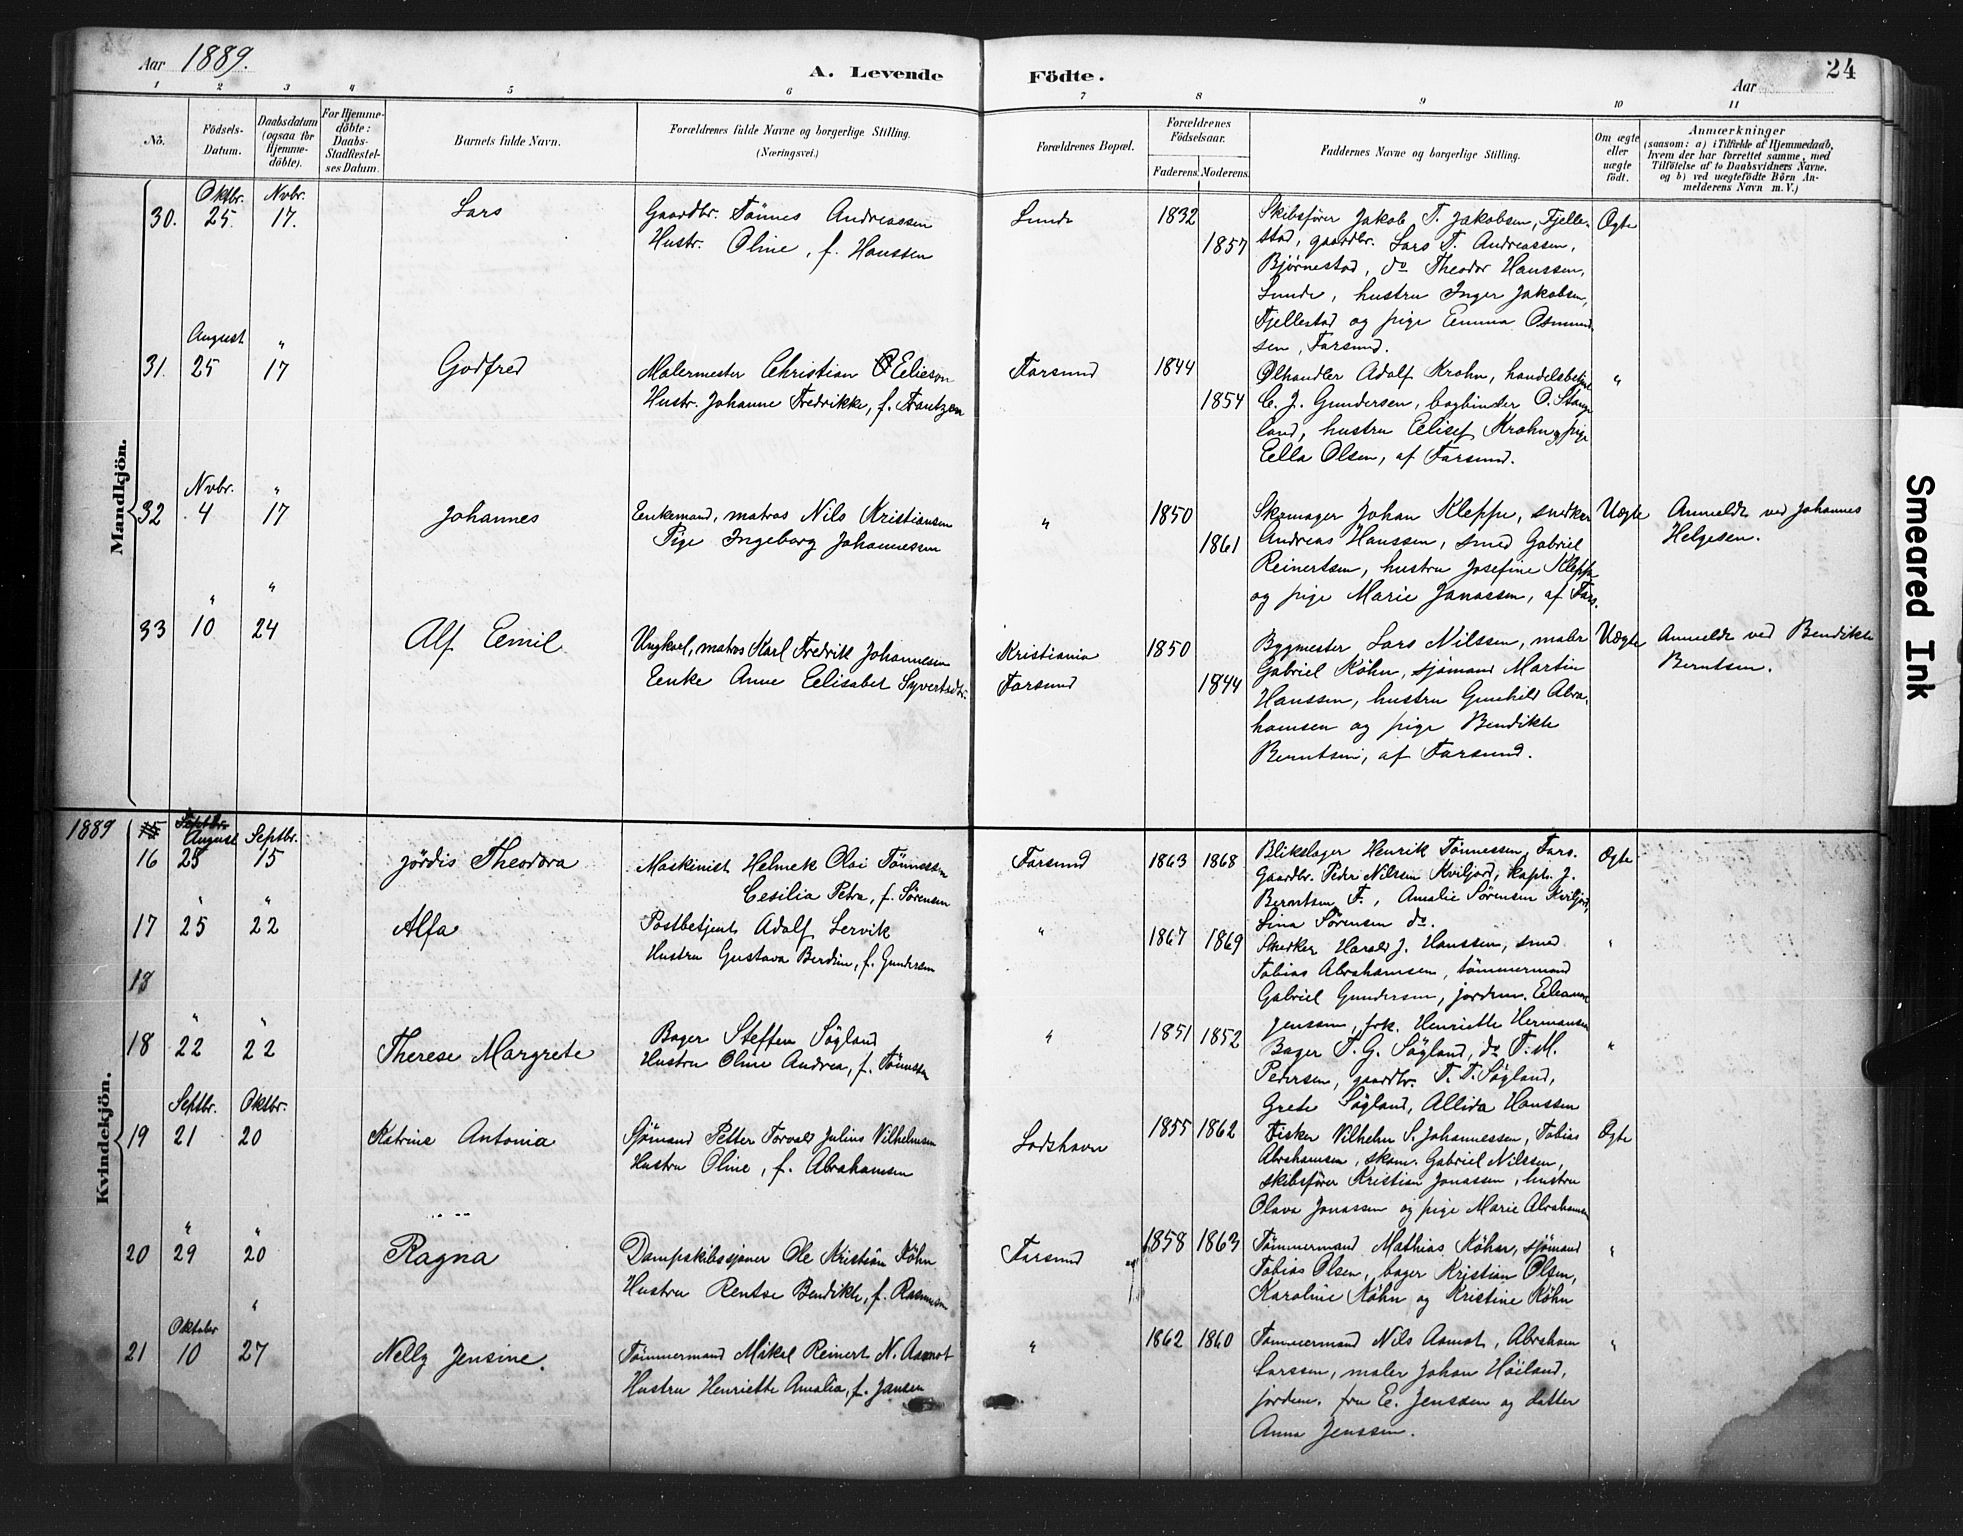 Aar 1889.
A. Levende Födte.
Aar
24
1 2 3 4 5 6 7 8 9 10 11
No.
Födsels-Datum.
Daabsdatum (ogsaa for Hjemme-döbte).
For Hjemme-döbte: Daabs-Stadfestel-ses Datum.
Barnets fulde Navn.
Forældrenes fulde Navne og borgerlige Stilling.
(Næringsvei.)
Forældrenes Bopæl.
Forældrenes Födselsaar.
Faderens. Moderens.
Faddernes Navne og borgerlige Stilling.
Om ægte eller uægte födt.
Anmærkninger
(saasom: a) i Tilfælde af Hjemmedaab, hvem der har forrettet samme, med Tilföielse af to Daabsvidners Navne. og b) ved uægtefödte Börn An-melderens Navn m. V.)
Mandkjön.
Oktbr. Nvbr.
30. 25. 17. Lars
Gaardbr. Tönnes Andreassen
Hustr. Oline, f. Hanssen
Lunde
1832
1857
Skibsfører Jakob T. Jakobsen, Fjelle-
stad, gaardbr. Lars T. Andreassen,
Bjørnestad, do Theodor Hanssen,
Lunde, hustru Inger Jakobsen,
Fjellestad og pige Emma Osmund-
sen, Farsund.
Ægte
August "
31. 25 17 Godfred
Malermester Christian Eelieson
Hustr. Johanne Fredrikke, f. Frantzen
Farsund
1844
1854
Ølhandler Adolf Krohn, handelsbetjent
C. J. Gundersen, bogbinder O. Stange
land, hustru Elisef Krohn og pige
Ella Olsen, af Farsund.
"
Nvbr. "
32 4 17 Johannes
Enkemand, matros Nils Kristiansen
Pige Ingeborg Johannessen
"
1850
1861
Skomager Johan Kleppe, snedker
Andreas Hanssen, smed Gabriel
Reinertsen, hustru Josefine Kleppe
og pige Marie Janassen, af Fars.
Uægte
Anmeldt ved Johannes
Helgesen.
" "
33 10 24 Alf Emil
Ungkarl, matros Karl Fredrik Johannesen
Enke Anne Elisabet Syvertsdtr.
Kristiania
Farsund
1850
1844
Bygmester Lars Nilssen, maler
Gabriel Köhn, sjömand Martin
Hanssen, hustru Gunhild Abra-
hamsen og pige Bendikte
Berntsen, af Farsund.
Uægte
Anmeldt ved Bendikte
Berntsen.
1889
Kvindekjön.
15 Septbr.
August Septbr.
16 25 15 Jördis Theodora
Maskinist Helmek Olai Tönnessen
Cesilia Petra, f. Sørensen
Farsund
1863 1868
Blikslager Henrik Tönnessen, Fars.
Gaardbr. Peder Nilsen Kviljord, Kapt. J.
Berntsen F., Amalie Sørensen Kviljord,
Lina Sørensen do.
Ægte
" "
17 25 22 Alfa
Postbetjent Adolf Lervik
Hustru Gustava Berdine, f. Gundersen
"
1867 1869
Snedker Harald J. Hanssen, smed
Tobias Abrahamsen, tömmermand
Gabriel Gundersen, jordem. Eleanore
Jenssen, frk. Henriette Hermansen
"
18
" "
18 22 22 Therese Margrete
Bager Steffen Sögland
Hustru Oline Andrea, f. Tönnessen
"
1851 1852
Bager T. G. Sögland, do T. M.
Pedersen, gaardbr. T. T. Sögland,
Grete Sögland, Allida Hanssen
"
Septbr. Oktbr.
19 21 20 Katrine Antonia
Sjömand Petter Torvald Julius Vilhelmsen
Hustru Oline, f. Abrahamsen
Lodshavn
1855 1862
Fisker Vilhelm S. Johannessen, Tobias
Abrahamsen, skom. Gabriel Nilssen,
skibsfører Kristian Jonassen, hustru
Olava Jonassen og pige Marie Abrahamsen
Ægte
" "
20 29 20 Ragna
Dampskibssjöner Ole Kristian Köhn
Hustru Rentse Bendikte, f. Rasmussen
Farsund
1858 1863
Tömmermand Mathias Köhn, sjömand
Tobias Olsen, bager Kristian Olsen,
Karoline Köhn og Kristine Köhn
"
Oktober "
21 10 27 Nelly Jensine.
Tömmermand Mikal Reinert N. Aamot
Hustru Henriette Amalia, f. Jansen
"
1862 1860
Tömmermand Nils Aamot, Abraham
Larssen, maler Johan Höiland,
jordem. fru E. Jenssen og datter
Anna Jenssen.
"
Smeared Ink